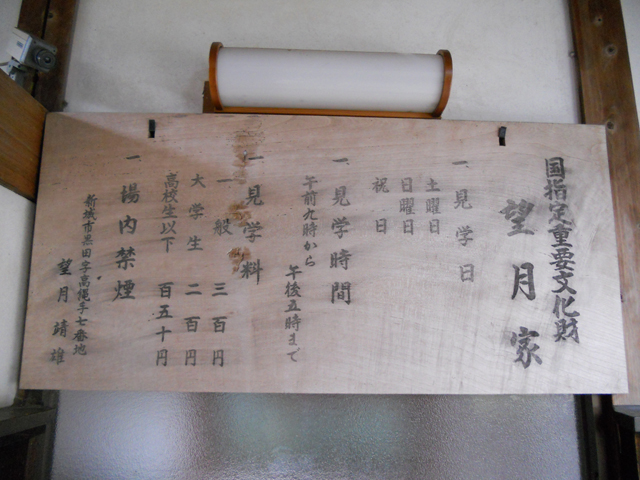 国指定重要文化財
望月家
一、見学日
土曜日
日曜日
祝日
一、見学時間
午前九時から
午後五時まで
一、見学料
一般 三百円
大学生 二百円
高校生以下 百五十円
一、場内禁煙
新城市黒田字高縄手七番地
望月靖雄